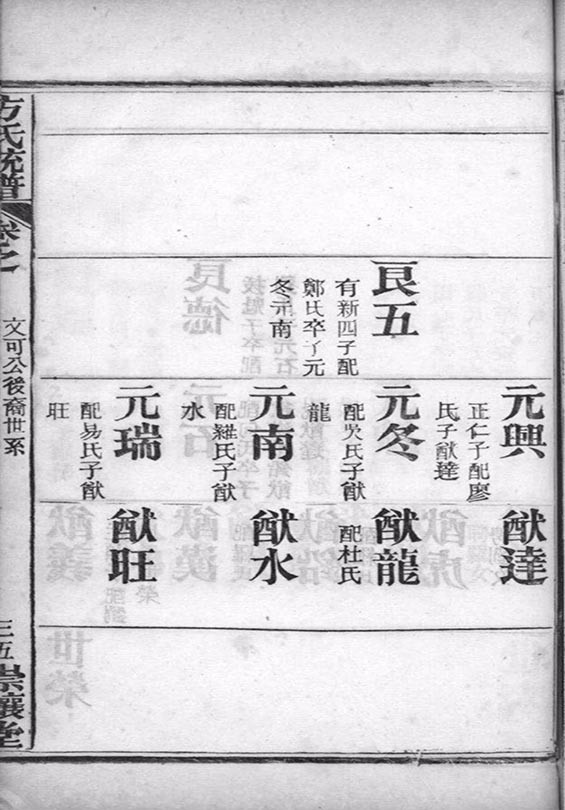 良五
有新四子配
鄭氏卒子元
冬元南
元興
正仁子配廖
氏子猷達
元冬
配吳氏子猷
龍
元南
配羅氏子猷
水
元瑞
配易氏子猷
旺
猷達
猷龍
配杜氏
猷水
猷旺
方氏統譜
卷之
文可公後裔世系
三五
崇讓堂